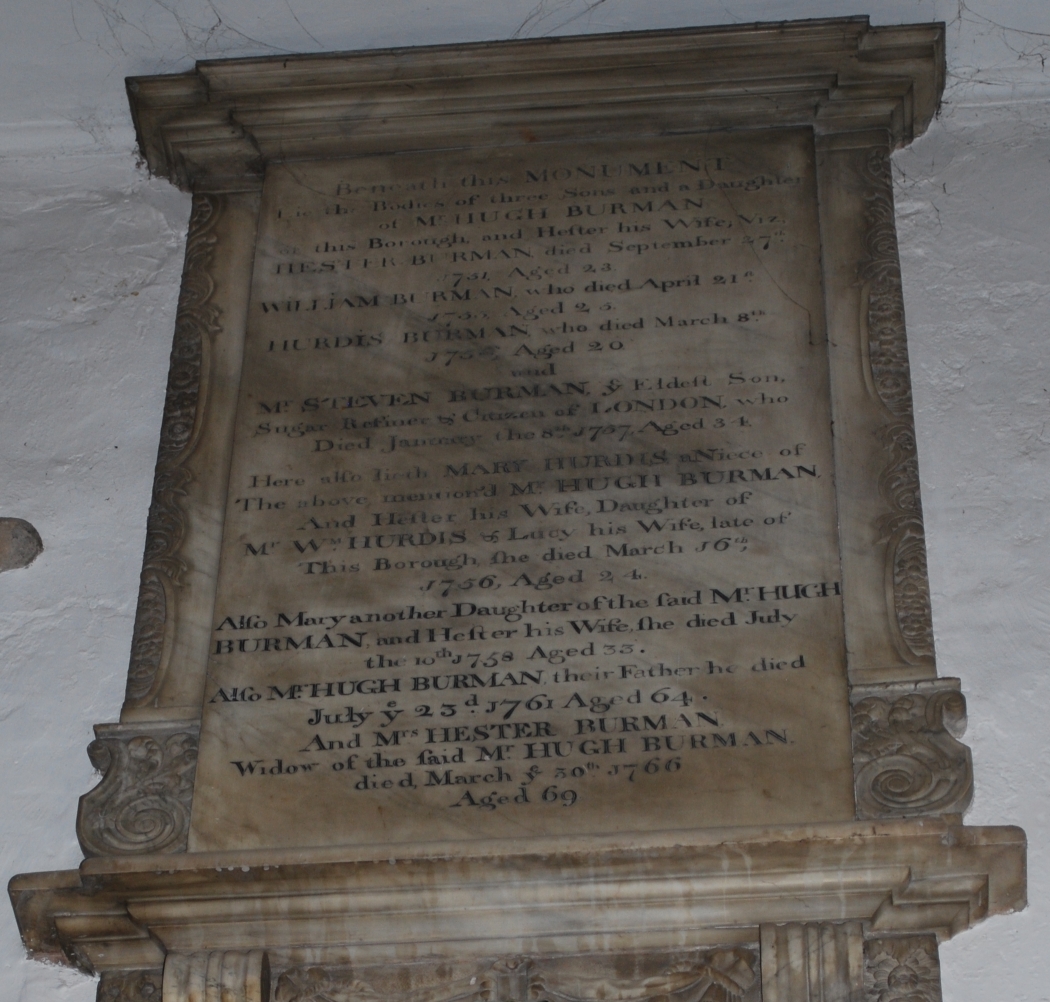 Beneath this MONUMENT
Lie the Bodies of three Sons and a Daughter
of Mr. HUGH BURMAN
of this Borough, and Hester his Wife, Viz.
HESTER BURMAN died September 27th
1731 Aged 23
WILLIAM BURMAN, who died April 21st
Aged 23.
HURDIS BURMAN, who died March 8th
Aged 20
and
Mr. STEVEN BURMAN, ye Eldest Son,
Sugar Refiner & Citizen of LONDON, who
Died January the 8th 1757, Aged 34
Here also lieth MARY HURDIS a Niece of
The above mention'd Mr. HUGH BURMAN,
And Hester his Wife, Daughter of
Mr. Wm. HURDIS & Lucy his Wife, late of
This Borough, she died March 16th,
1756, Aged 24.
Also Mary another Daughter of the said Mr. HUGH
BURMAN, and Hester his Wife, she died July
the 10th 1758 Aged 33.
Also Mr. HUGH BURMAN, their Father he died
July ye 23d. 1761 Aged 64.
And Mrs HESTER BURMAN,
Widow of the said Mr. HUGH BURMAN.
died, March ye 30th 1766
Aged 69